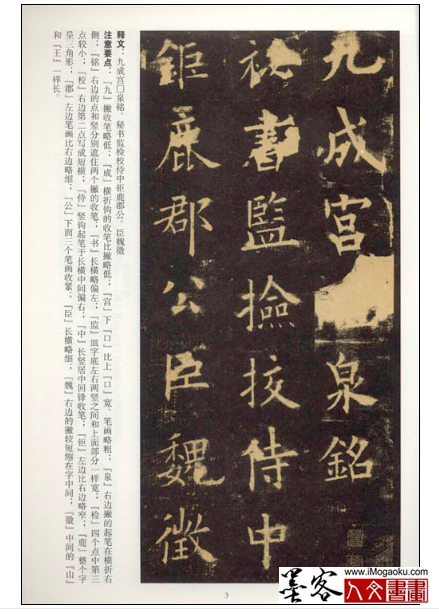 九成宫 泉銘
秘書監撿挍侍中
鉅鹿郡公臣魏徵
释文：九成宫□泉铭。秘书监检校侍中钜鹿郡公，臣魏徵
注意要点：「九」撇收笔略低；「成」横折钩的收笔比撇略低；「宫」下「口」比上「口」宽、笔画略粗；「泉」右边撇的起笔在横折右
侧；「铭」右边的点和竖分别遮住两个撇的收笔；「书」长横略偏左；「监」皿字底左右两竖之间和上面部分一样宽；「检」四个点中第三
点较小；「校」右边第二点写成短横；「侍」竖钩起笔于长横中间偏右；「中」长竖居中回锋收笔；「钜」左边比右边略窄；「鹿」整个字
呈三角形；「郡」左边笔画比右边略细；「公」下面三个笔画收紧；「臣」长横略细；「魏」右边的撇较短缩在字中间；「徵」中间的「山」
和「王」一样长。
3
墨客
www.iMogaoku.com
人文書畫